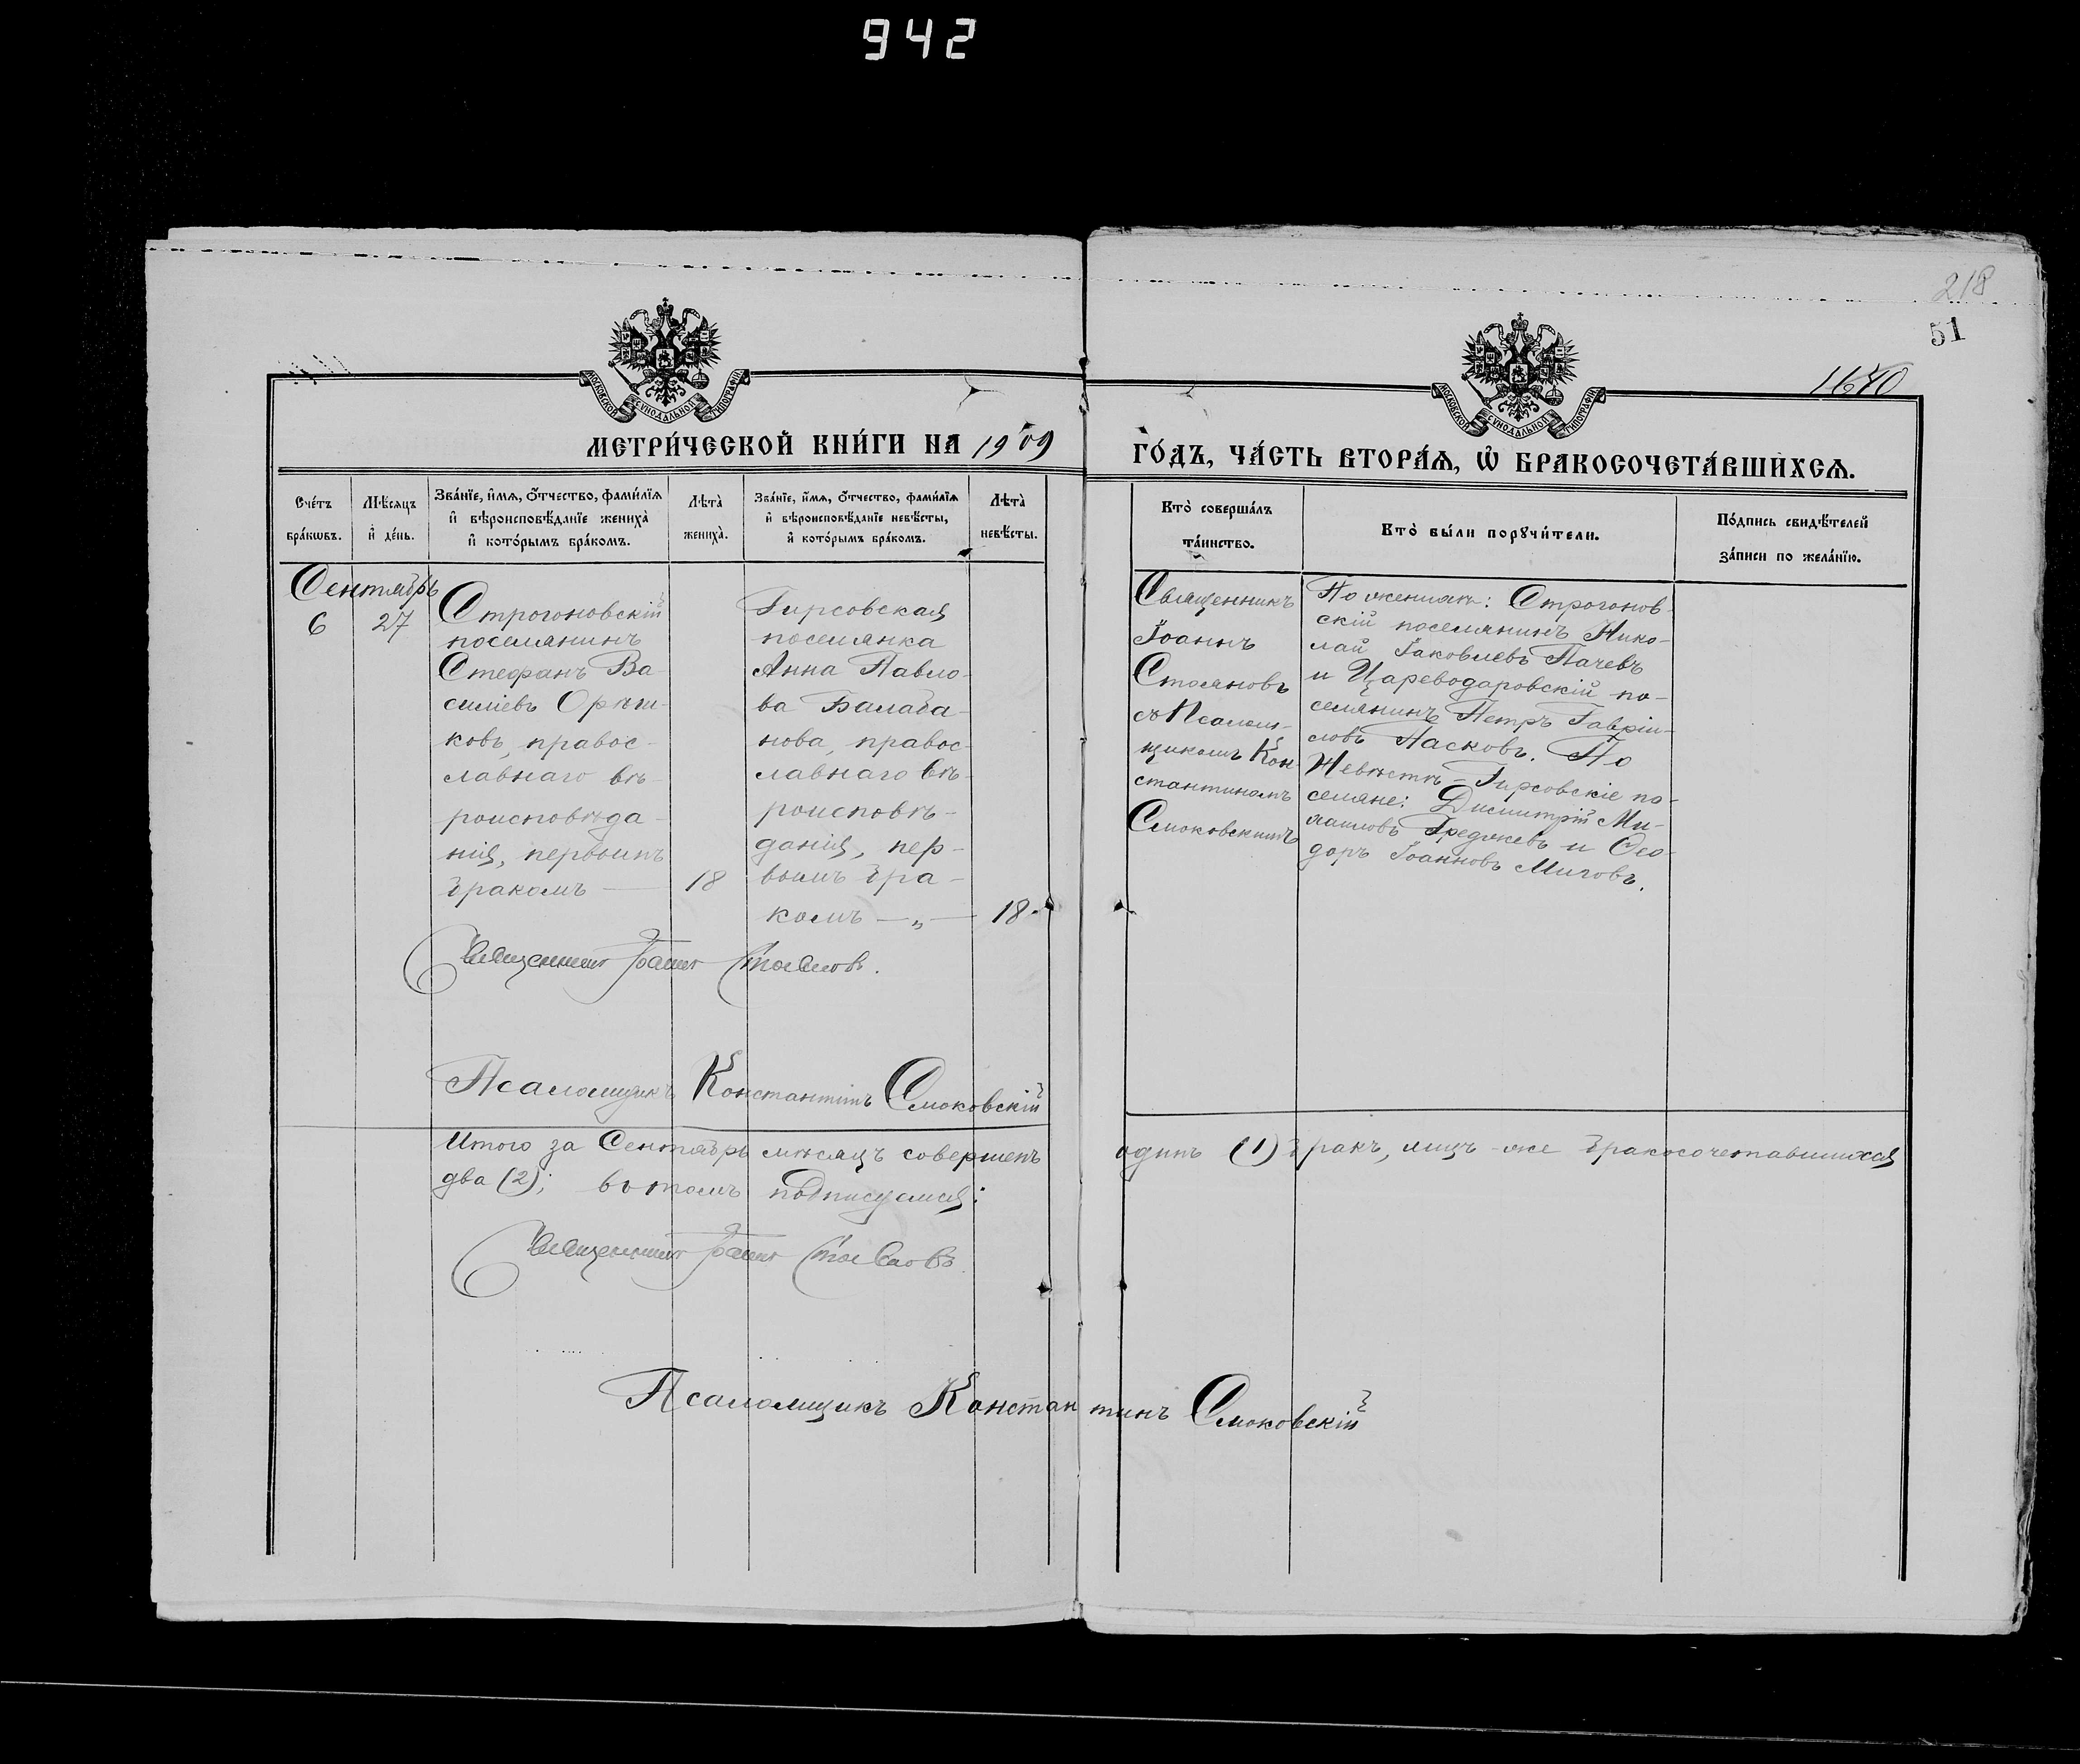 942
218
51
1680
МОСКОВСКОЙ СѴНОДАЛЬНОЙ ТИПОГРАФІИ
МОСКОВСКОЙ СѴНОДАЛЬНОЙ ТИПОГРАФІИ
МЕТРИ́ЧЕСКОЙ КНИ́ГИ НА 1909
ГО́ДЪ, ЧА́СТЬ ВТОРА́Ѧ, Ѡ҆ БРАКОСОЧЕТА́ВШИХСѦ.
Сче́тъ бра́кѡвъ.
Мѣ́сяцъ и҆ де́нь.
Зва́нїе, и҆́мѧ, Ѻ҆́тчество, фами́лїѧ
и҆ вѣроисповѣ́данїе жениха̀
и҆ кото́рымъ бра́комъ.
Лѣта̀ жениха̀.
Зва́нїе, и҆́мѧ, Ѻ҆́тчество, фами́лїѧ
и҆ вѣроисповѣ́данїе невѣ́сты,
и҆ кото́рымъ бра́комъ.
Лѣта̀ невѣ́сты.
Кто̀ соверша́лъ
та́инство.
Кто̀ бы́ли порꙋчи́тели.
По́дпись свидѣ́телей
за́писи по жела́нїю.
Сентябрь
6
27
Строгоновскій
поселянинъ
Стефанъ Ва-
силіевъ Орѣш-
ковъ, правос-
лавнаго вѣ-
роисповѣда-
нія, первымъ
бракомъ —
18
Гирсовская
поселянка
Анна Павло-
ва Балаба-
нова, правос-
лавнаго вѣ-
роисповѣ-
данія, пер-
вымъ бра-
комъ — „ —
18.
Священникъ
Іоаннъ
Стояновъ
съ Псалом-
щикомъ Кон-
стантиномъ
Смоковскимъ
По женихѣ: Строгонов-
скій поселянинъ Нико-
лай Іаковлевъ Пачевъ
и Цареводаровскій по-
селянинъ Петръ Гавріи-
ловъ Пасковъ. По
Невѣстѣ – Гирсовскіе по-
селяне: Димитрій Ми-
хаиловъ Греджевъ и Ѳео-
доръ Іоанновъ Миговъ.
Священникъ Іоаннъ Стояновъ.
Псаломщикъ Константинъ Смоковскій
Итого за Сентябрь мѣсяцъ совершенъ одинъ (1) бракъ, лицъ-же бракосочетавшихся
два (2); въ томъ подписуемся:
Священникъ Іоаннъ Стояновъ.
Псаломщикъ Константинъ Смоковскій